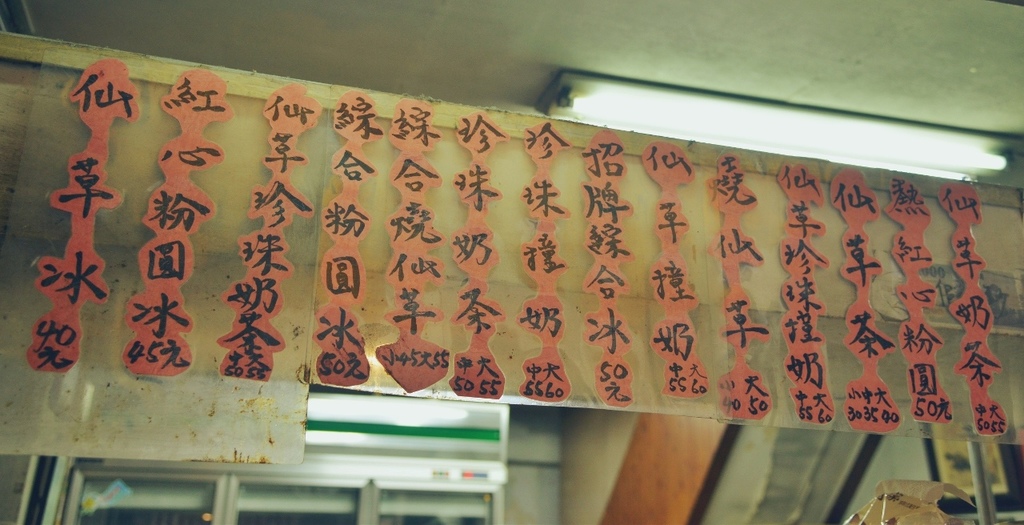 仙草冰
40元
紅心粉圓冰
45元
仙草珍珠奶茶
綜合粉圓冰
50元
綜合燒仙草
小45大55
珍珠奶茶
中50 大55
珍珠撞奶
中55 大60
招牌綜合冰
50元
仙草撞奶
中55 大60
燒仙草
40 大50
仙草珍珠撞奶
中55 大60
仙草茶
小30 中35 大40
熱紅心粉圓
50元
仙草奶茶
中50 大55